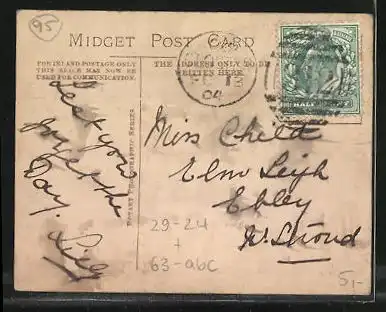 95
MIDGET POST CARD
FOR INLAND POSTAGE ONLY
THIS SPACE MAY NOW BE
USED FOR COMMUNICATION.
THE ADDRESS ONLY TO BE
WRITTEN HERE.
04
HALF
Lest you
forget the
Day. Lily
ROTARY PHOTOGRAPHIC SERIES
Miss Child
Elm Leigh
Ebley
Nr. Stroud
29-24
+
63-abc
5,-